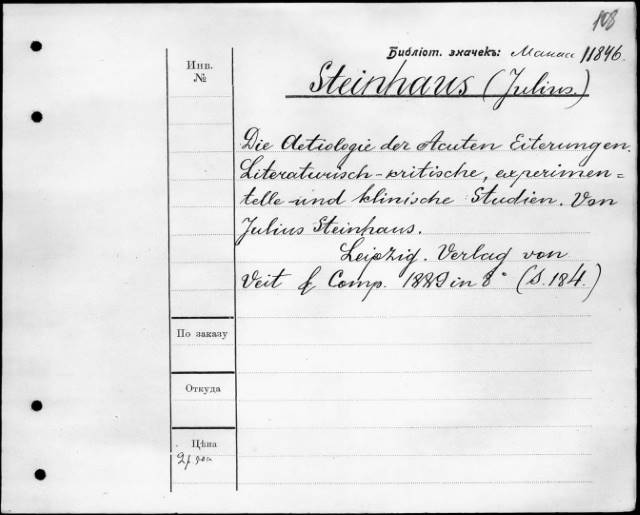 108
Библіот. значекъ: 11846.
Инв.
№
Steinhaus (Julius.)
Die Aetiologie der Acuten Eiterungen.
Literaturisch-kritische, experimen=
telle und klinische Studien. Von
Julius Steinhaus.
Leipzig. Verlag von
Veit & Comp. 1889 in 8° (S. 184.)
По заказу
Откуда
Цѣна